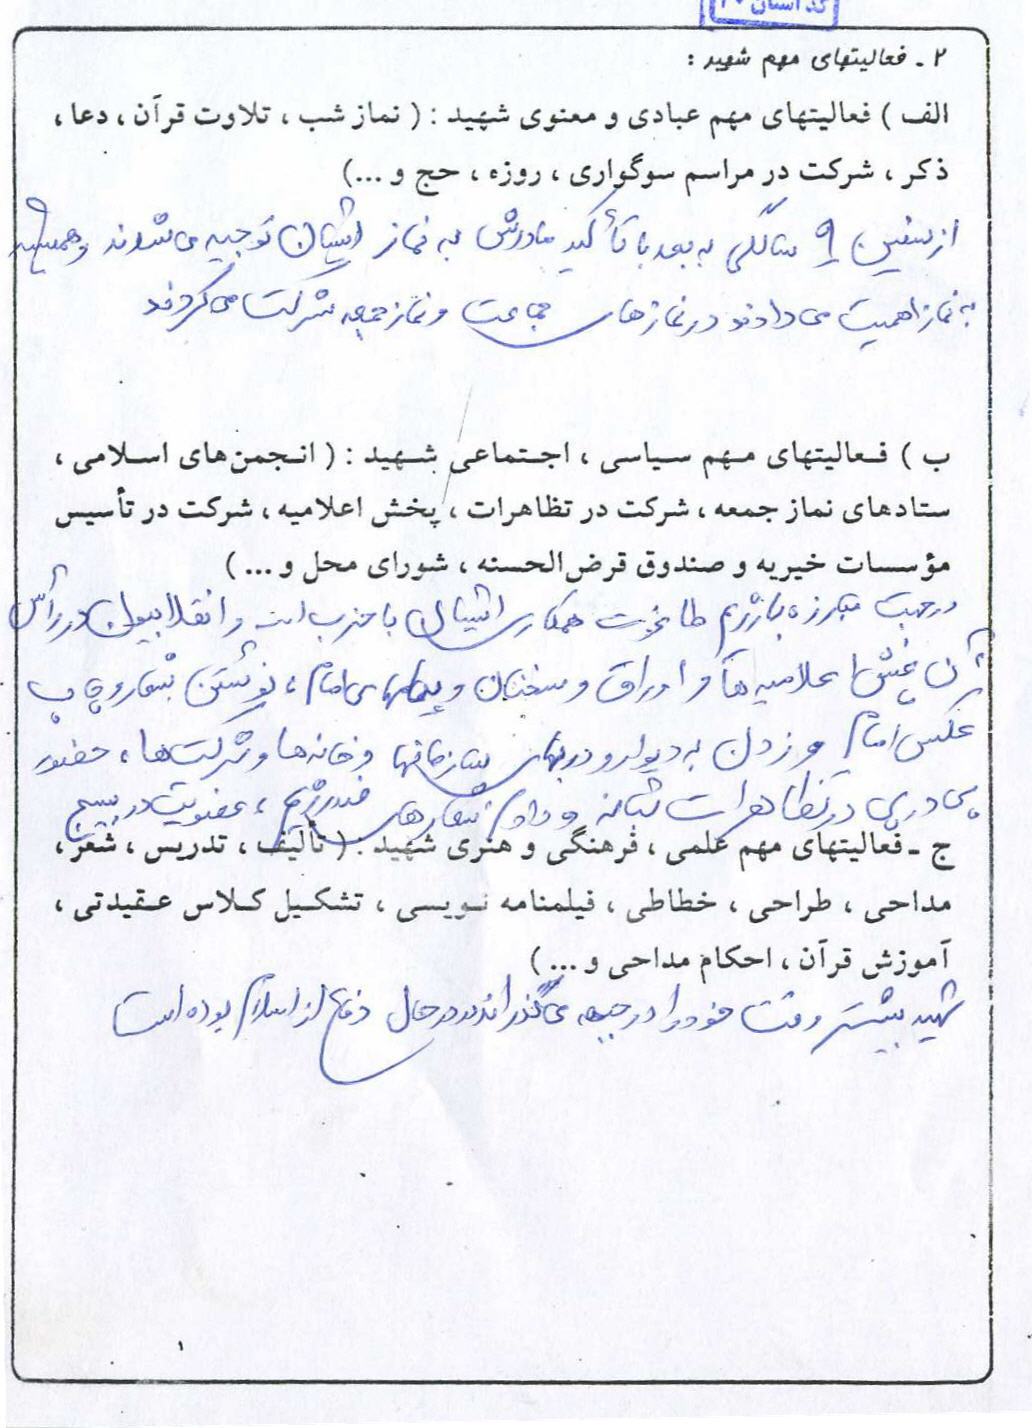 کد استان
۲ ـ فعالیتهای مهم شهید :
الف ) فعالیتهای مهم عبادی و معنوی شهید : ( نماز شب ، تلاوت قرآن ، دعا ،
ذکر ، شرکت در مراسم سوگواری ، روزه ، حج و ...)
از سنین ۹ سالگی به بعد با تأکید مادرش به نماز ایشان توجیه می شدند و همیشه
به نماز اهمیت می دادند در نمازهای جماعت و نماز جمعه شرکت می کردند
ب ) فعالیتهای مهم سیاسی ، اجتماعی شهید : ( انجمن‌های اسلامی ،
ستادهای نماز جمعه ، شرکت در تظاهرات ، پخش اعلامیه ، شرکت در تأسیس
مؤسسات خیریه و صندوق قرض‌الحسنه ، شورای محل و ... )
در جهت مبارزه با رژیم طاغوت همکاری ایشان با حزب ا... و انقلابیون در رأس
آن پخش اعلامیه ها و اوراق و سخنان و پیامهای امام ، نوشتن شعار و چاپ
عکس امام و زدن به دیوار و دربهای خانه‌ها و شرکت‌ها ، حضور
پی در پی در تظاهرات شبانه و دادن شعارهای ضد رژیم ، عضویت در بسیج
ج ـ فعالیتهای مهم علمی ، فرهنگی و هنری شهید : ( تألیف ، تدریس ، شعر ،
مداحی ، طراحی ، خطاطی ، فیلمنامه نویسی ، تشکیل کلاس عقیدتی ،
آموزش قرآن ، احکام مداحی و ... )
شهید بیشتر وقت خود را در جبهه می گذراندند در حال دفاع از اسلام بوده است
۱